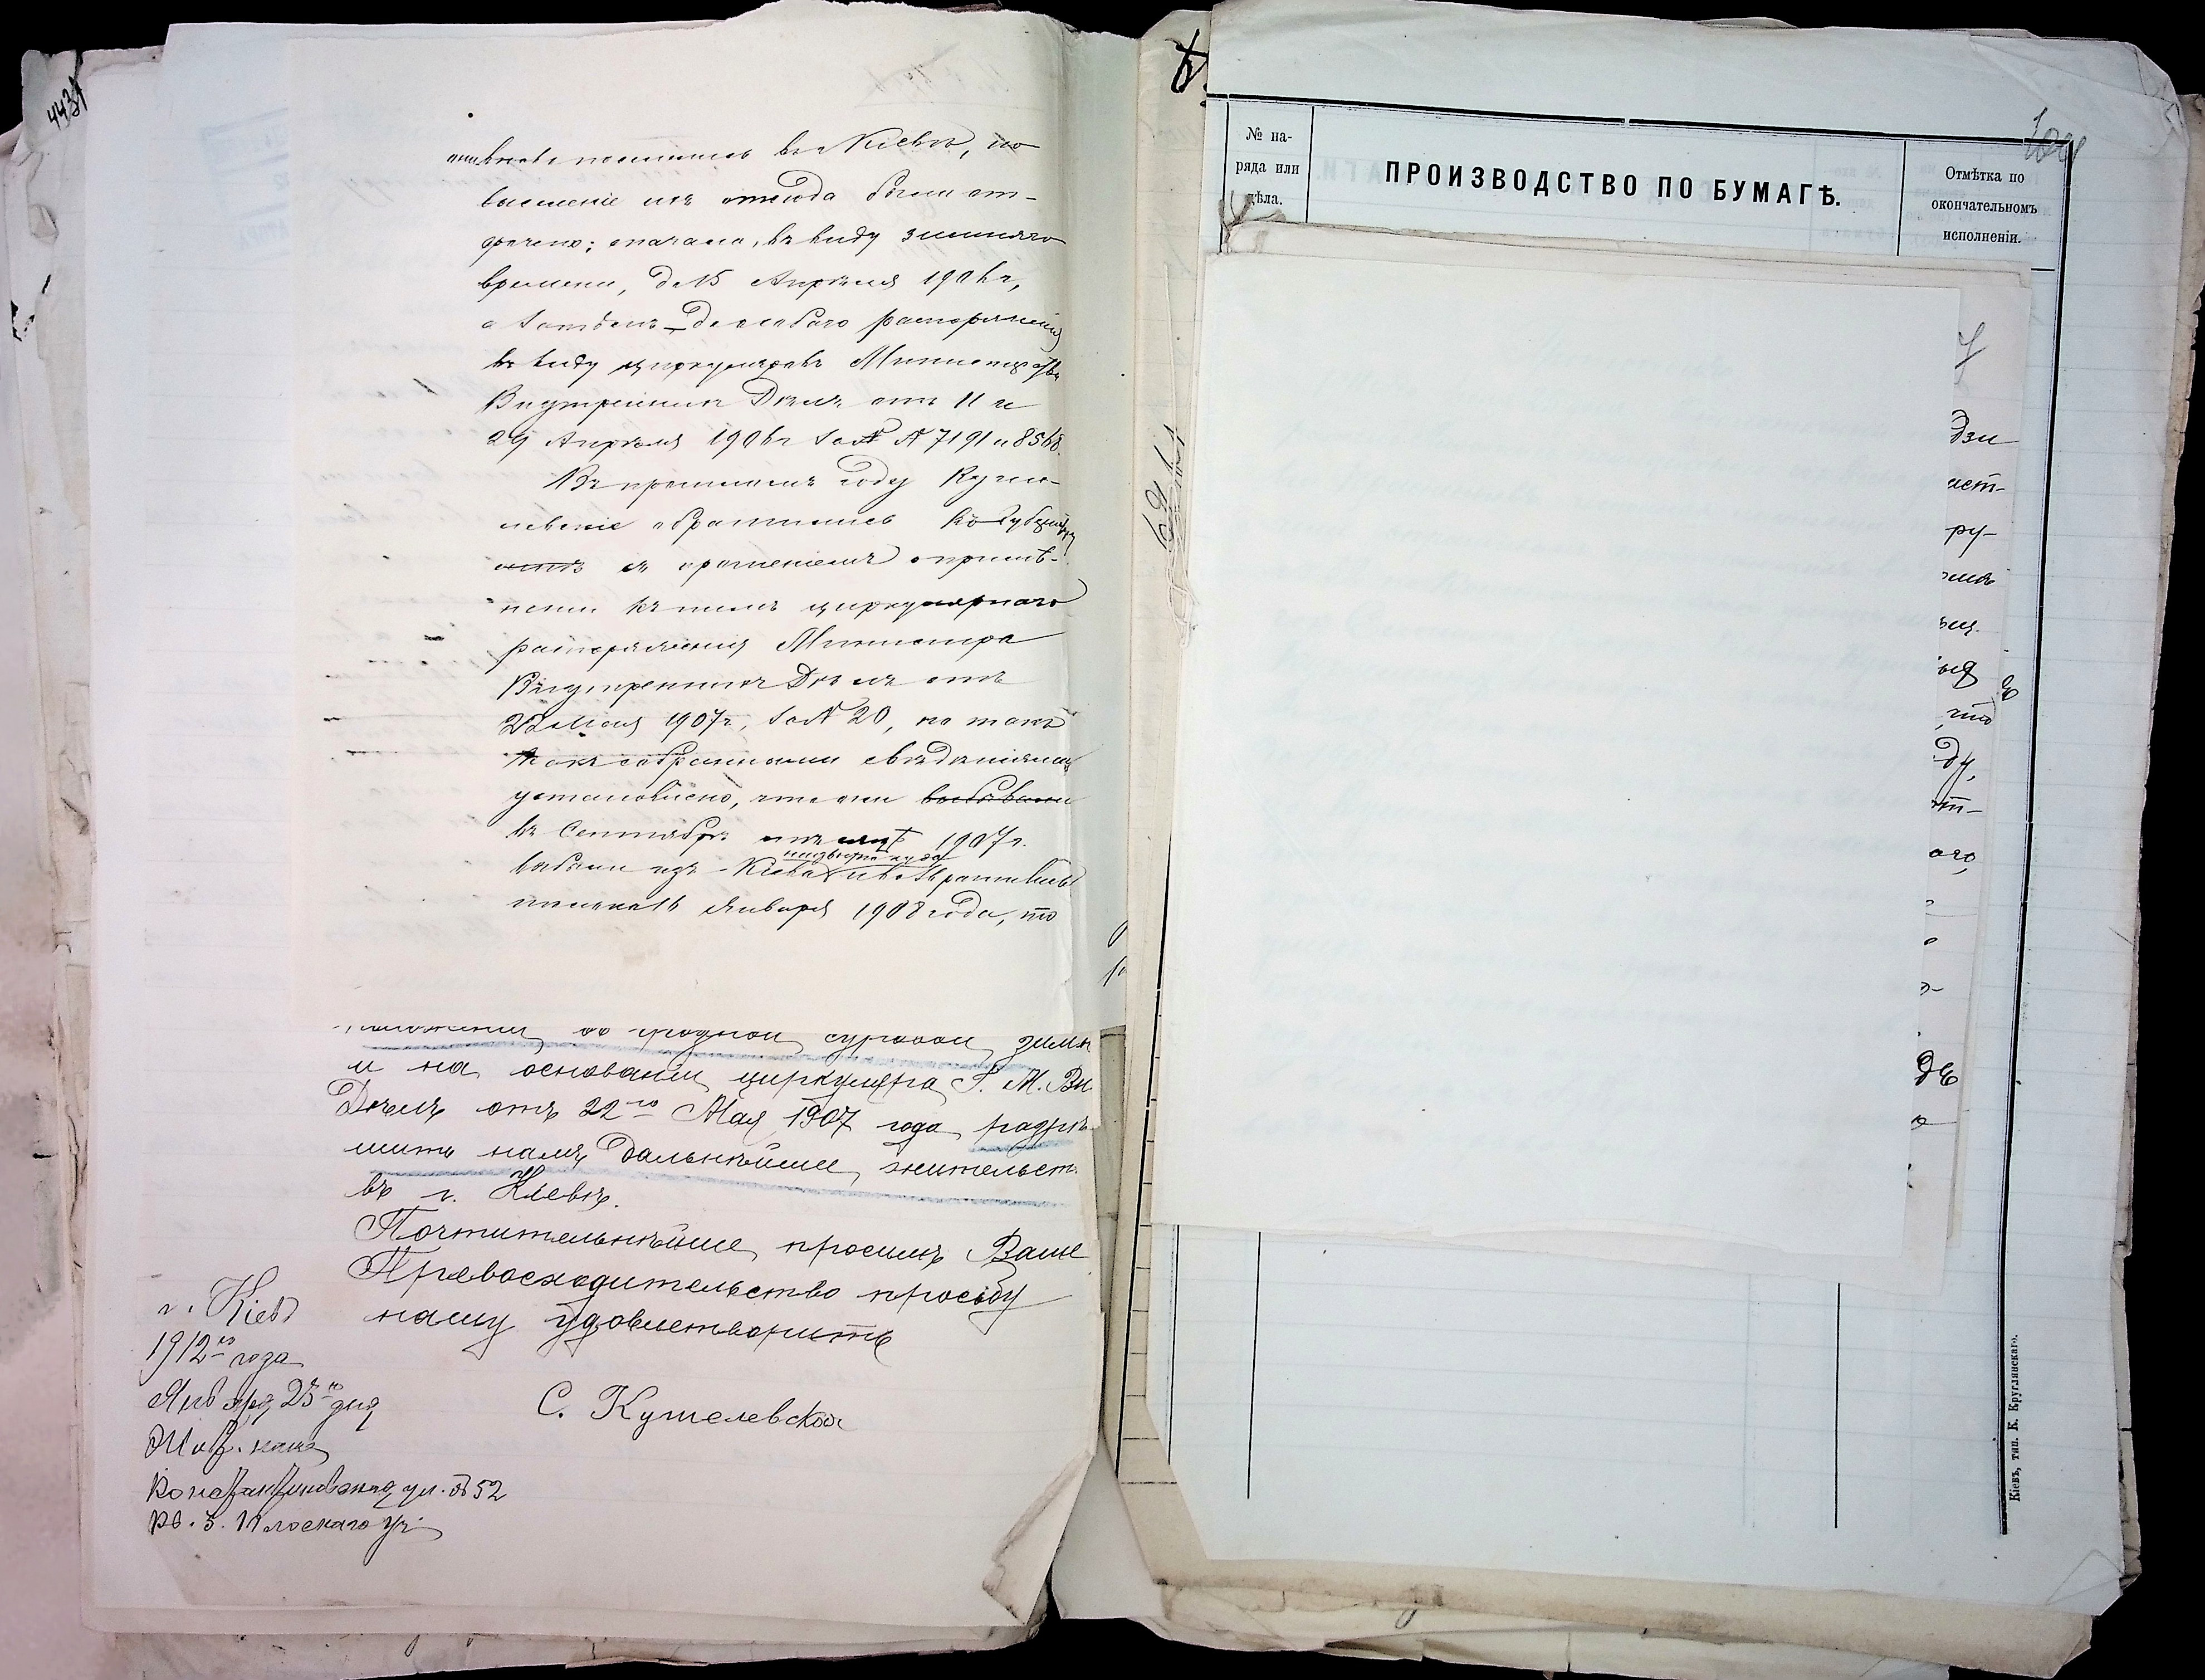 443
поселились въ Кіевѣ, но
выселеніе ихъ отсюда было от-
срочено: сначала, въ виду зимняго
времени, до 15 Апрѣля 1906 г.,
а затѣмъ до особаго распоряженія
въ виду циркуляровъ Министерства
Внутреннихъ Дѣлъ отъ 11 и
29 Апрѣля 1906 г. за №№ 7191 и 8568.
Въ прошломъ году Куше-
левскіе обратились къ
съ прошеніемъ о примѣ-
неніи къ нимъ циркулярнаго
распоряженія Министра
Внутреннихъ Дѣлъ отъ
22 Мая 1907 г. за № 20, но такъ
какъ собранными свѣдѣніями
установлено, что они выбывали
въ Сентябрѣ 1907 г.
неизвѣстно куда
выбыли изъ Кіева и возвратились
января 1908 года, то
суровой зимы
и на основаніи циркуляра Г. М. Вн.
Дѣлъ отъ 22го Мая 1907 года разрѣ-
шить намъ дальнѣйшее жительст.
въ г. Кіевѣ.
Почтительнѣйше просимъ Ваше
Превосходительство просьбу
нашу удовлетворить
г. Кіевъ
1912го года
Января 25го дня
Жит. наше
Константиновская ул. д 52
кв. 3. Плоскаго уч.
С. Кушелевская
№ на-
ряда или
дѣла.
ПРОИЗВОДСТВО ПО БУМАГѢ.
Отмѣтка по
окончательномъ
исполненіи.
дзи
ист-
ру-
ду,
ого,
де
Кіевъ, тип. К. Круглянскаго.